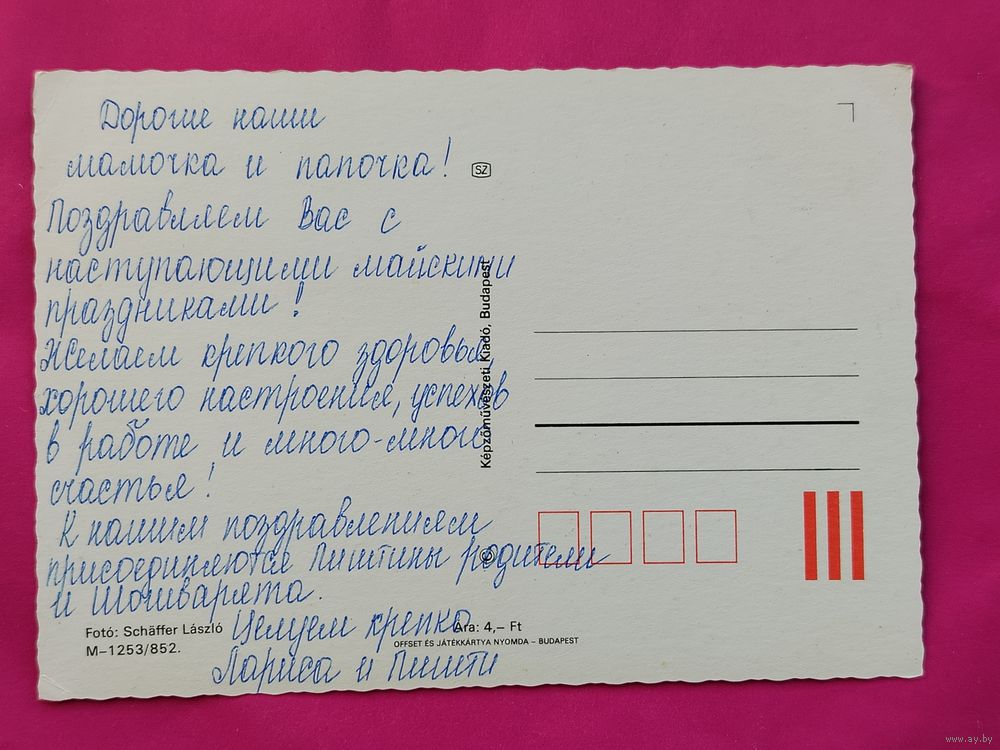 Дорогие наши
мамочка и папочка!
SZ
Поздравляем Вас с
наступающими майскими
праздниками!
Желаем крепкого здоровья,
хорошего настроения, успехов
в работе и много-много
счастья!
К нашим поздравлениям
присоединяются Пиштины родители
и Шошварята.
Целуем крепко
Лариса и Пишти
Képzőművészeti Kiadó, Budapest
Fotó: Schäffer László
M–1253/852.
Ára: 4,– Ft
OFFSET ÉS JÁTÉKKÁRTYA NYOMDA – BUDAPEST
www.ay.by